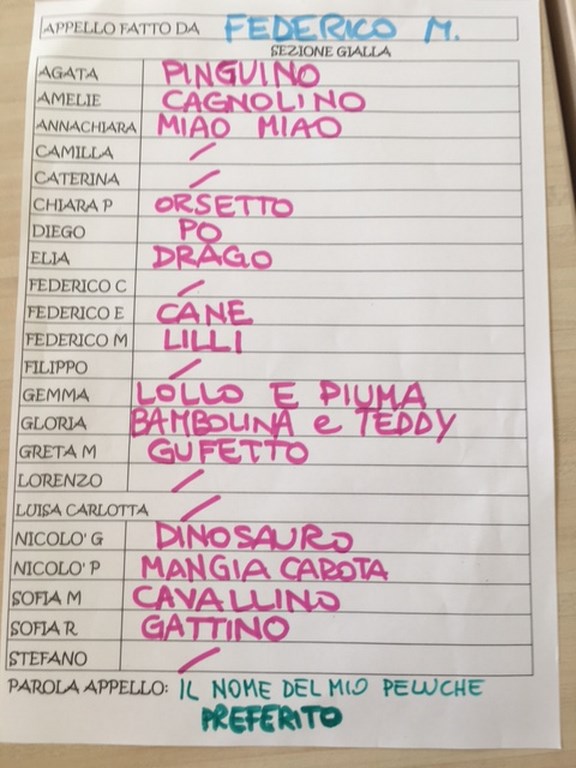 APPELLO FATTO DA FEDERICO M.
SEZIONE GIALLA
AGATA PINGUINO
AMELIE CAGNOLINO
ANNACHIARA MIAO MIAO
CAMILLA /
CATERINA /
CHIARA P ORSETTO
DIEGO PO
ELIA DRAGO
FEDERICO C /
FEDERICO E CANE
FEDERICO M LILLI
FILIPPO /
GEMMA LOLLO E PIUMA
GLORIA BAMBOLINA e TEDDY
GRETA M GUFETTO
LORENZO /
LUISA CARLOTTA /
NICOLO' G DINOSAURO
NICOLO' P MANGIA CAROTA
SOFIA M CAVALLINO
SOFIA R GATTINO
STEFANO /
PAROLA APPELLO: IL NOME DEL MIO PELUCHE
PREFERITO